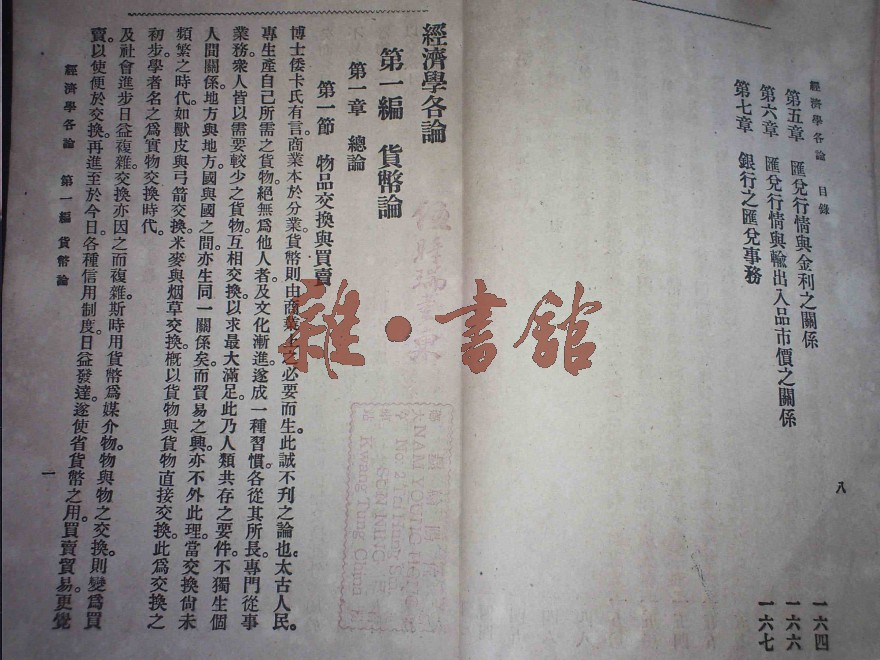 經濟學各論 目錄
第五章 匯兌行情與金利之關係 一六四
第六章 匯兌行情與輸出入品市價之關係 一六六
第七章 銀行之匯兌事務 一六七
八
經濟學各論
第一編 貨幣論
第一章 總論
第一節 物品交換與買賣
博士倭卡氏有言。商業本於分業。貨幣則由商業上之必要而生。此誠不刊之論也。太古人民。
專生產自己所需之貨物。絕無爲他人者。及文化漸進。遂成一種習慣。各從其所長。專門從事
業務。衆人皆以需要較少之貨物。互相交換。以求最大滿足。此乃人類共存之要件。不獨生個
人間關係。地方與地方。國與國之間。亦生同一關係矣。而貿易之興。亦不外此理。當交換尙未
頻繁之時代。如獸皮與弓箭交換。米麥與烟草交換。槪以貨物與貨物直接交換。此爲交換之
初步。學者名之爲實物交換時代。
及社會進步。日益複雜。交換亦因之而複雜。斯時用貨幣爲媒介物。物與物之交換。則變爲買
賣。以使便於交換。再進至於今日。各種信用制度。日益發達。遂使省貨幣之用。買賣貿易。更覺
經濟學各論 第一編 貨幣論
一
雜·書館
NAM YOUNG
SUN NING
Kwang Tung China